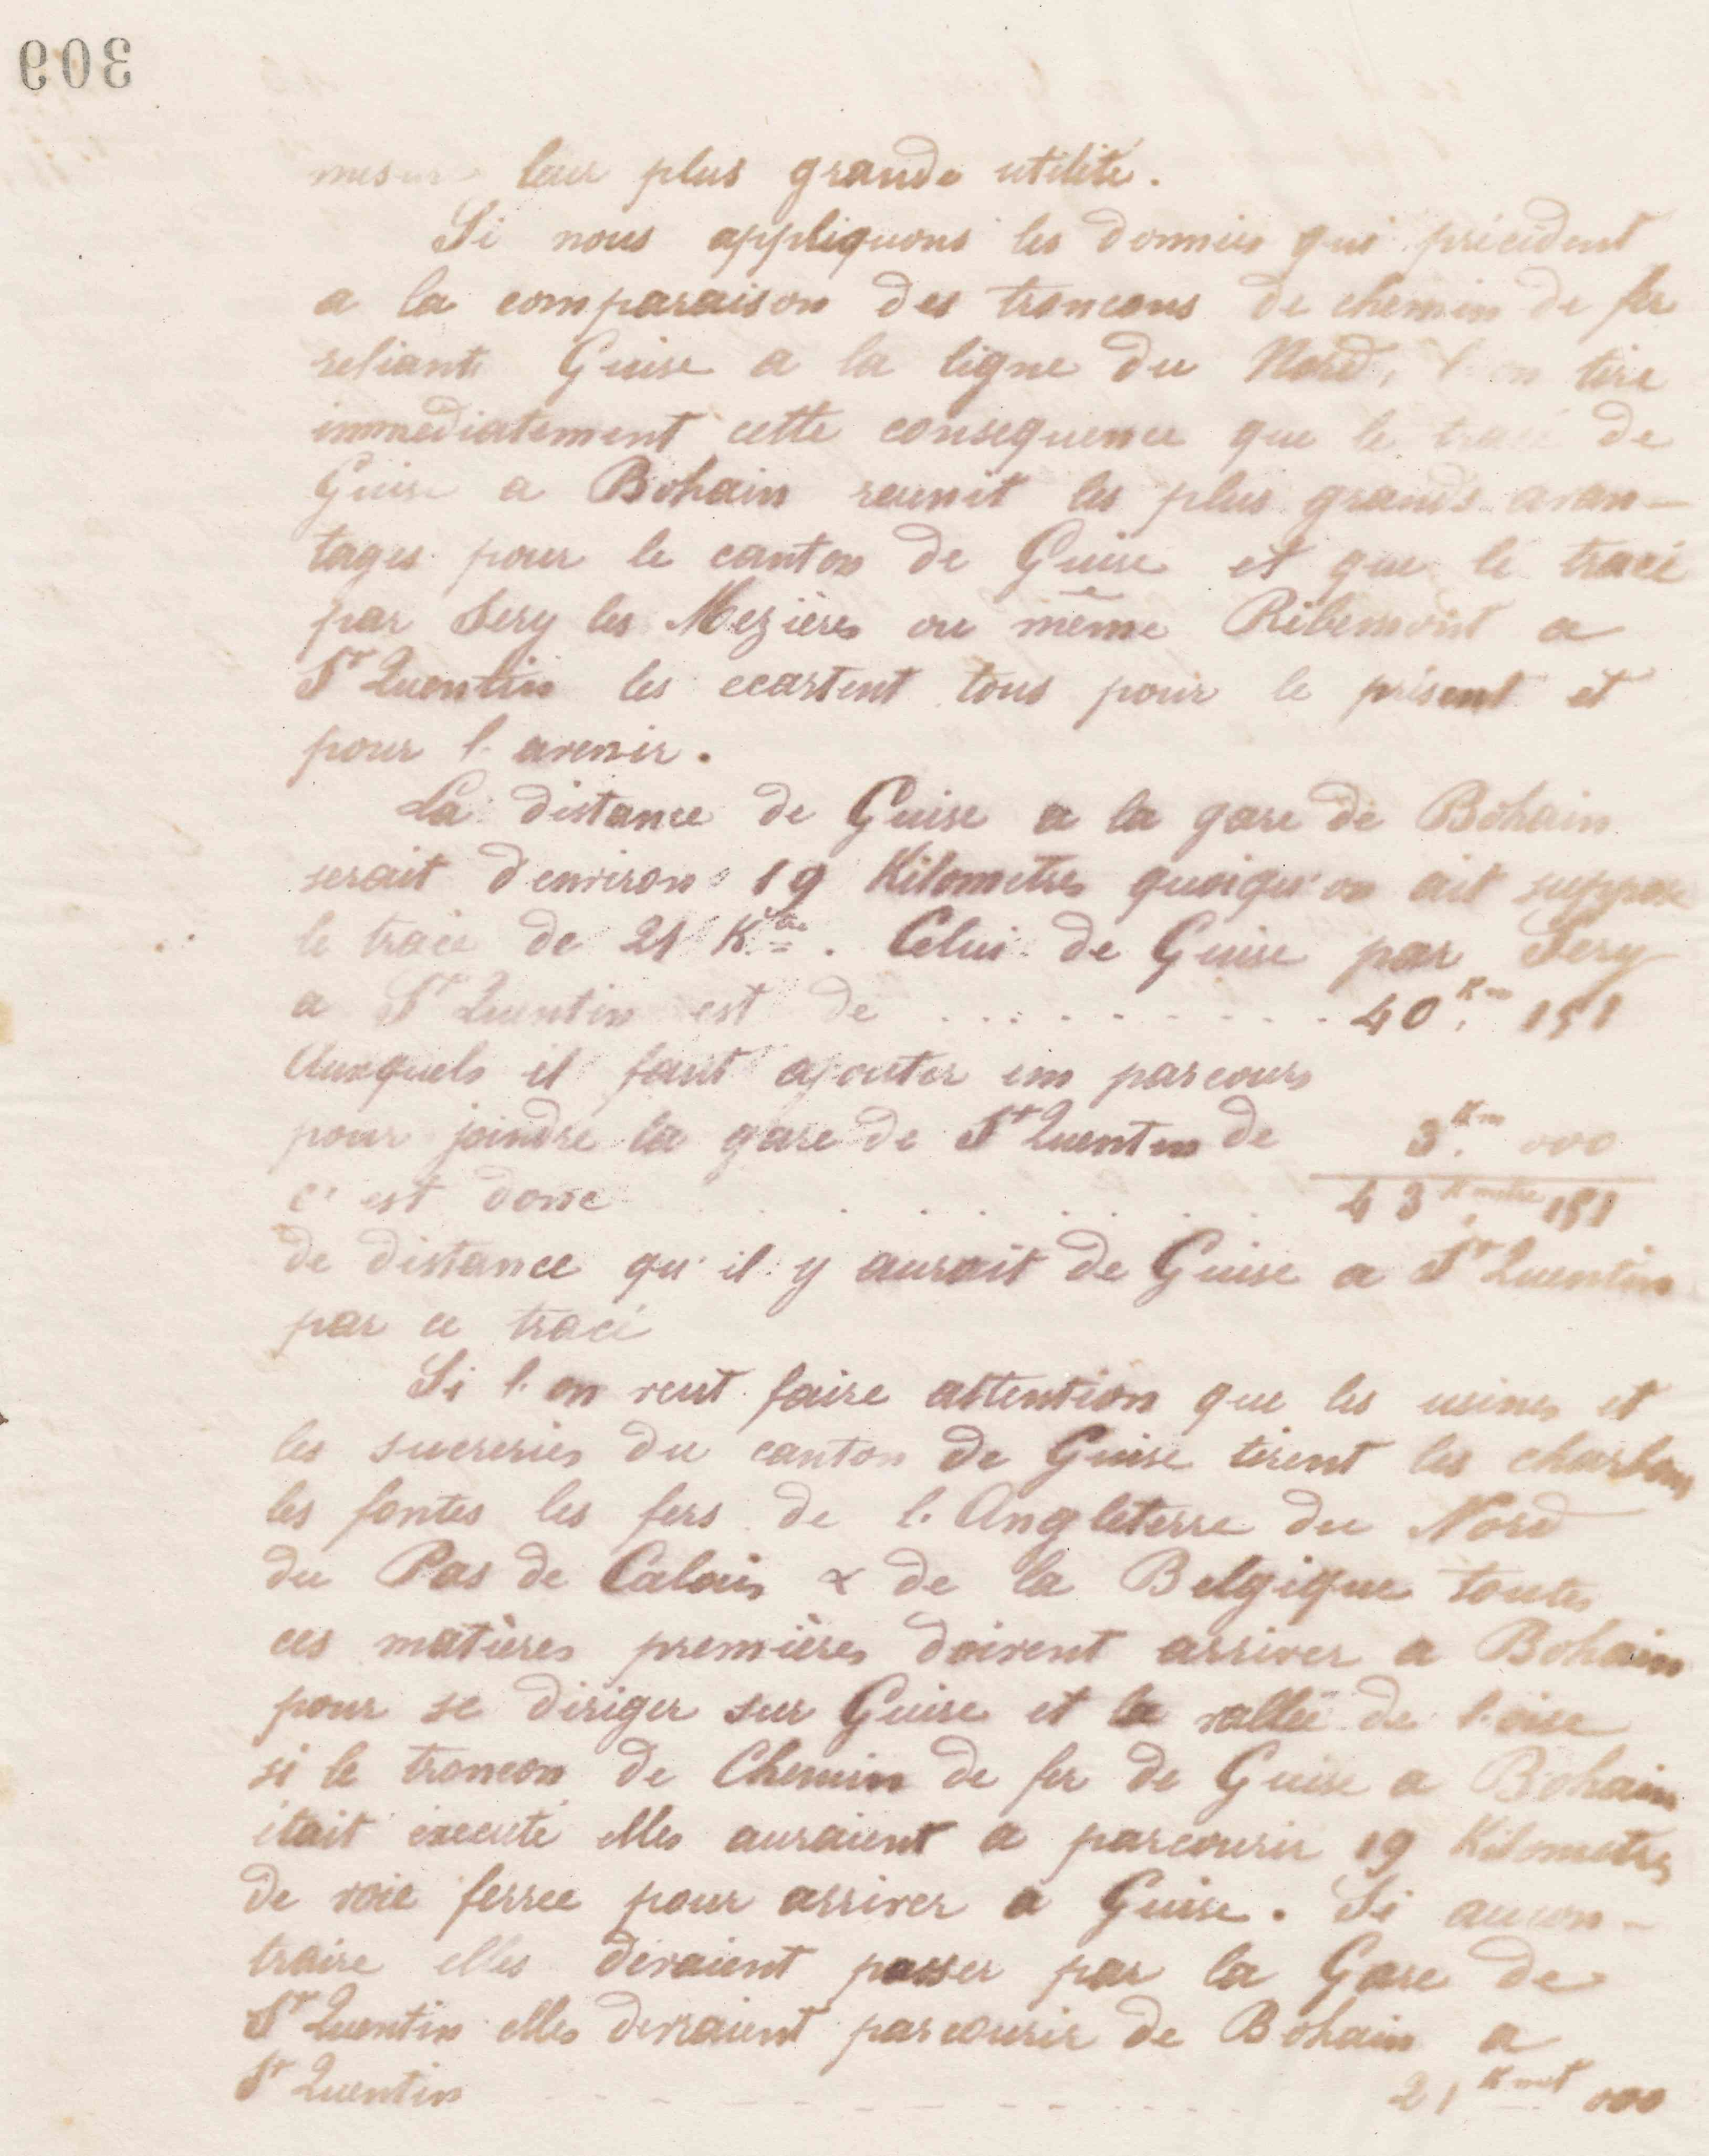 309
mesure leur plus grande utilité.
Si nous appliquons les données qui précédent
a la comparaison des troncons de chemin de fer
reliants Guise a la ligne du Nord, l'on tire
immédiatement cette consequence que le tracé de
Guise a Bohain reunit les plus grands avan-
tages pour le canton de Guise et que le tracé
par Sery les Mezières ou même Ribemont a
St Quentin les ecartent tous pour le présent et
pour l'avenir.
La distance de Guise a la gare de Bohain
serait d'environ 19 Kilometres quoiqu'on ait supposé
le tracé de 21 Ktre. Celui de Guise par Sery
a St Quentin est de . . . . . . . . . 40 Km 151
Auxquels il faut ajouter un parcours
pour joindre la gare de St Quentin de 3 Km 000
c'est donc . . . . . . . 43 Kmetre 151
de distance qu'il y aurait de Guise a St Quentin
par ce tracé
Si l'on veut faire attention que les usines et
les sucreries du canton de Guise tirent les charbons
les fontes les fers de l'Angleterre du Nord
du Pas de Calais & de la Belgique toutes
ces matières premières doivent arriver a Bohain
pour se diriger sur Guise et la vallée de l'oise
si le troncon de Chemin de fer de Guise a Bohain
était éxecuté elles auraient a parcourir 19 Kilometres
de voie ferree pour arriver a Guise. Si aucon-
traire elles devaient passer par la Gare de
St Quentin elles devraient parcourir de Bohain a
St Quentin - - - - - - - - - 21 Kmet 000